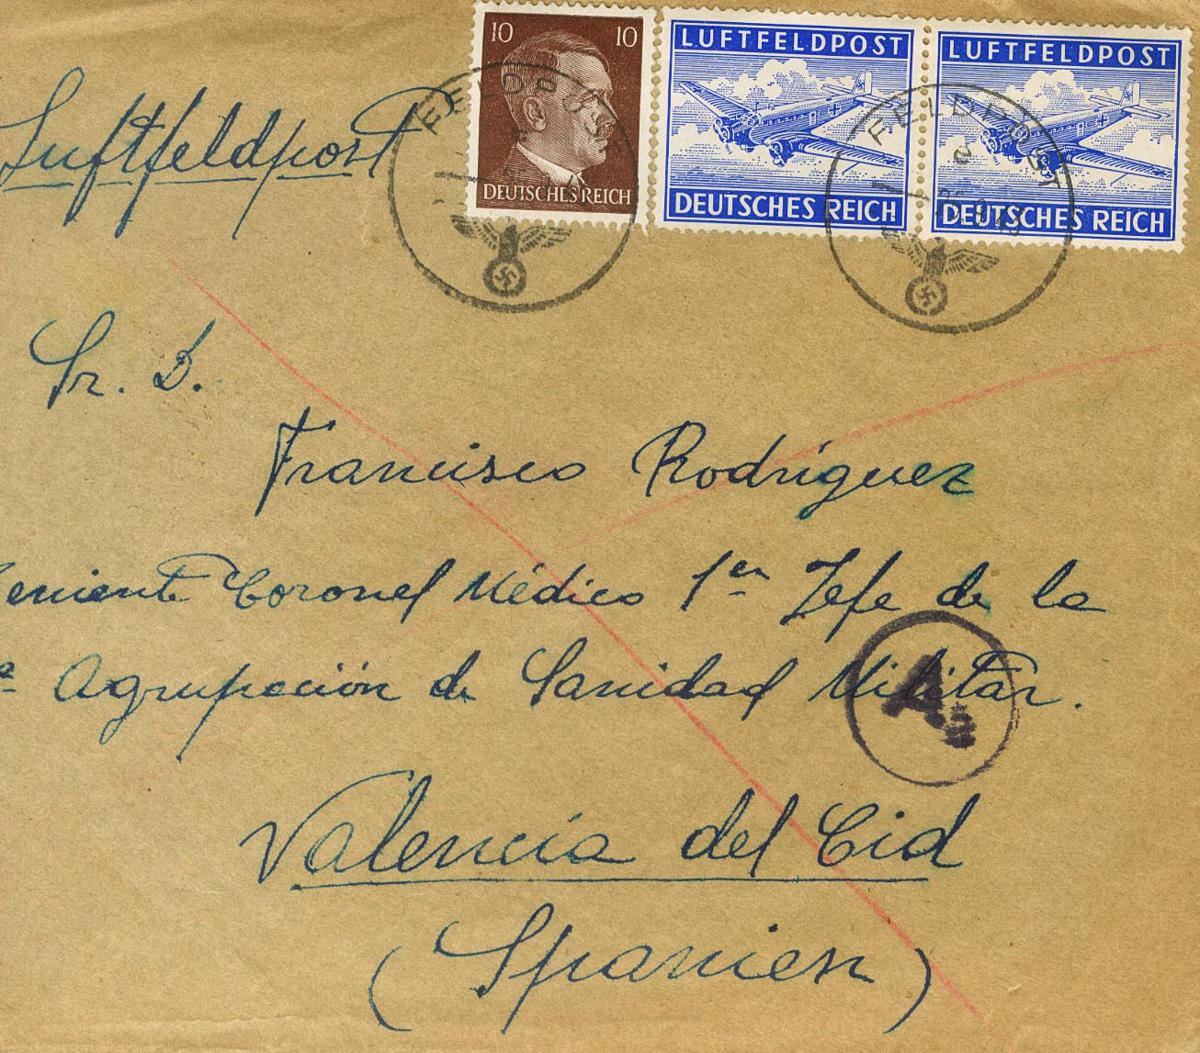 10 10
DEUTSCHES REICH
LUFTFELDPOST
DEUTSCHES REICH
LUFTFELDPOST
DEUTSCHES REICH
FELDPOST
FELDPOST
e
Luftfeldpost
Sr. D.
Francisco Rodríguez
Teniente Coronel Médico 1er Jefe de la
ª Agrupación de Sanidad Militar.
A
Valencia del Cid
(Spanien)